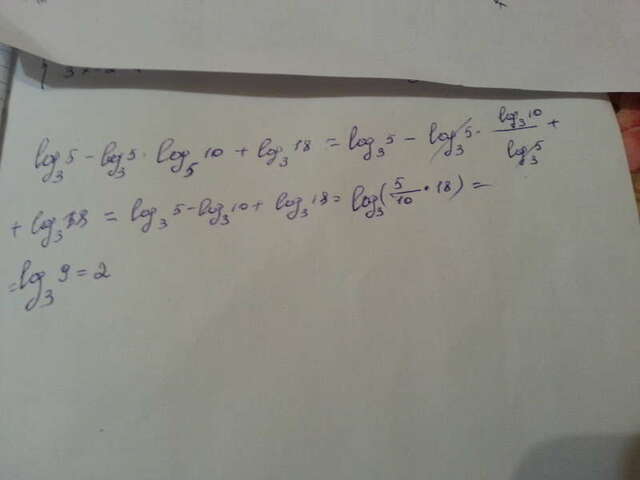 log₃5 - log₃5 · log₅10 + log₃18 = log₃5 - log₃5 · log₃10 / log₃5 +
+ log₃18 = log₃5 - log₃10 + log₃18 = log₃(5/10 · 18) =
= log₃9 = 2